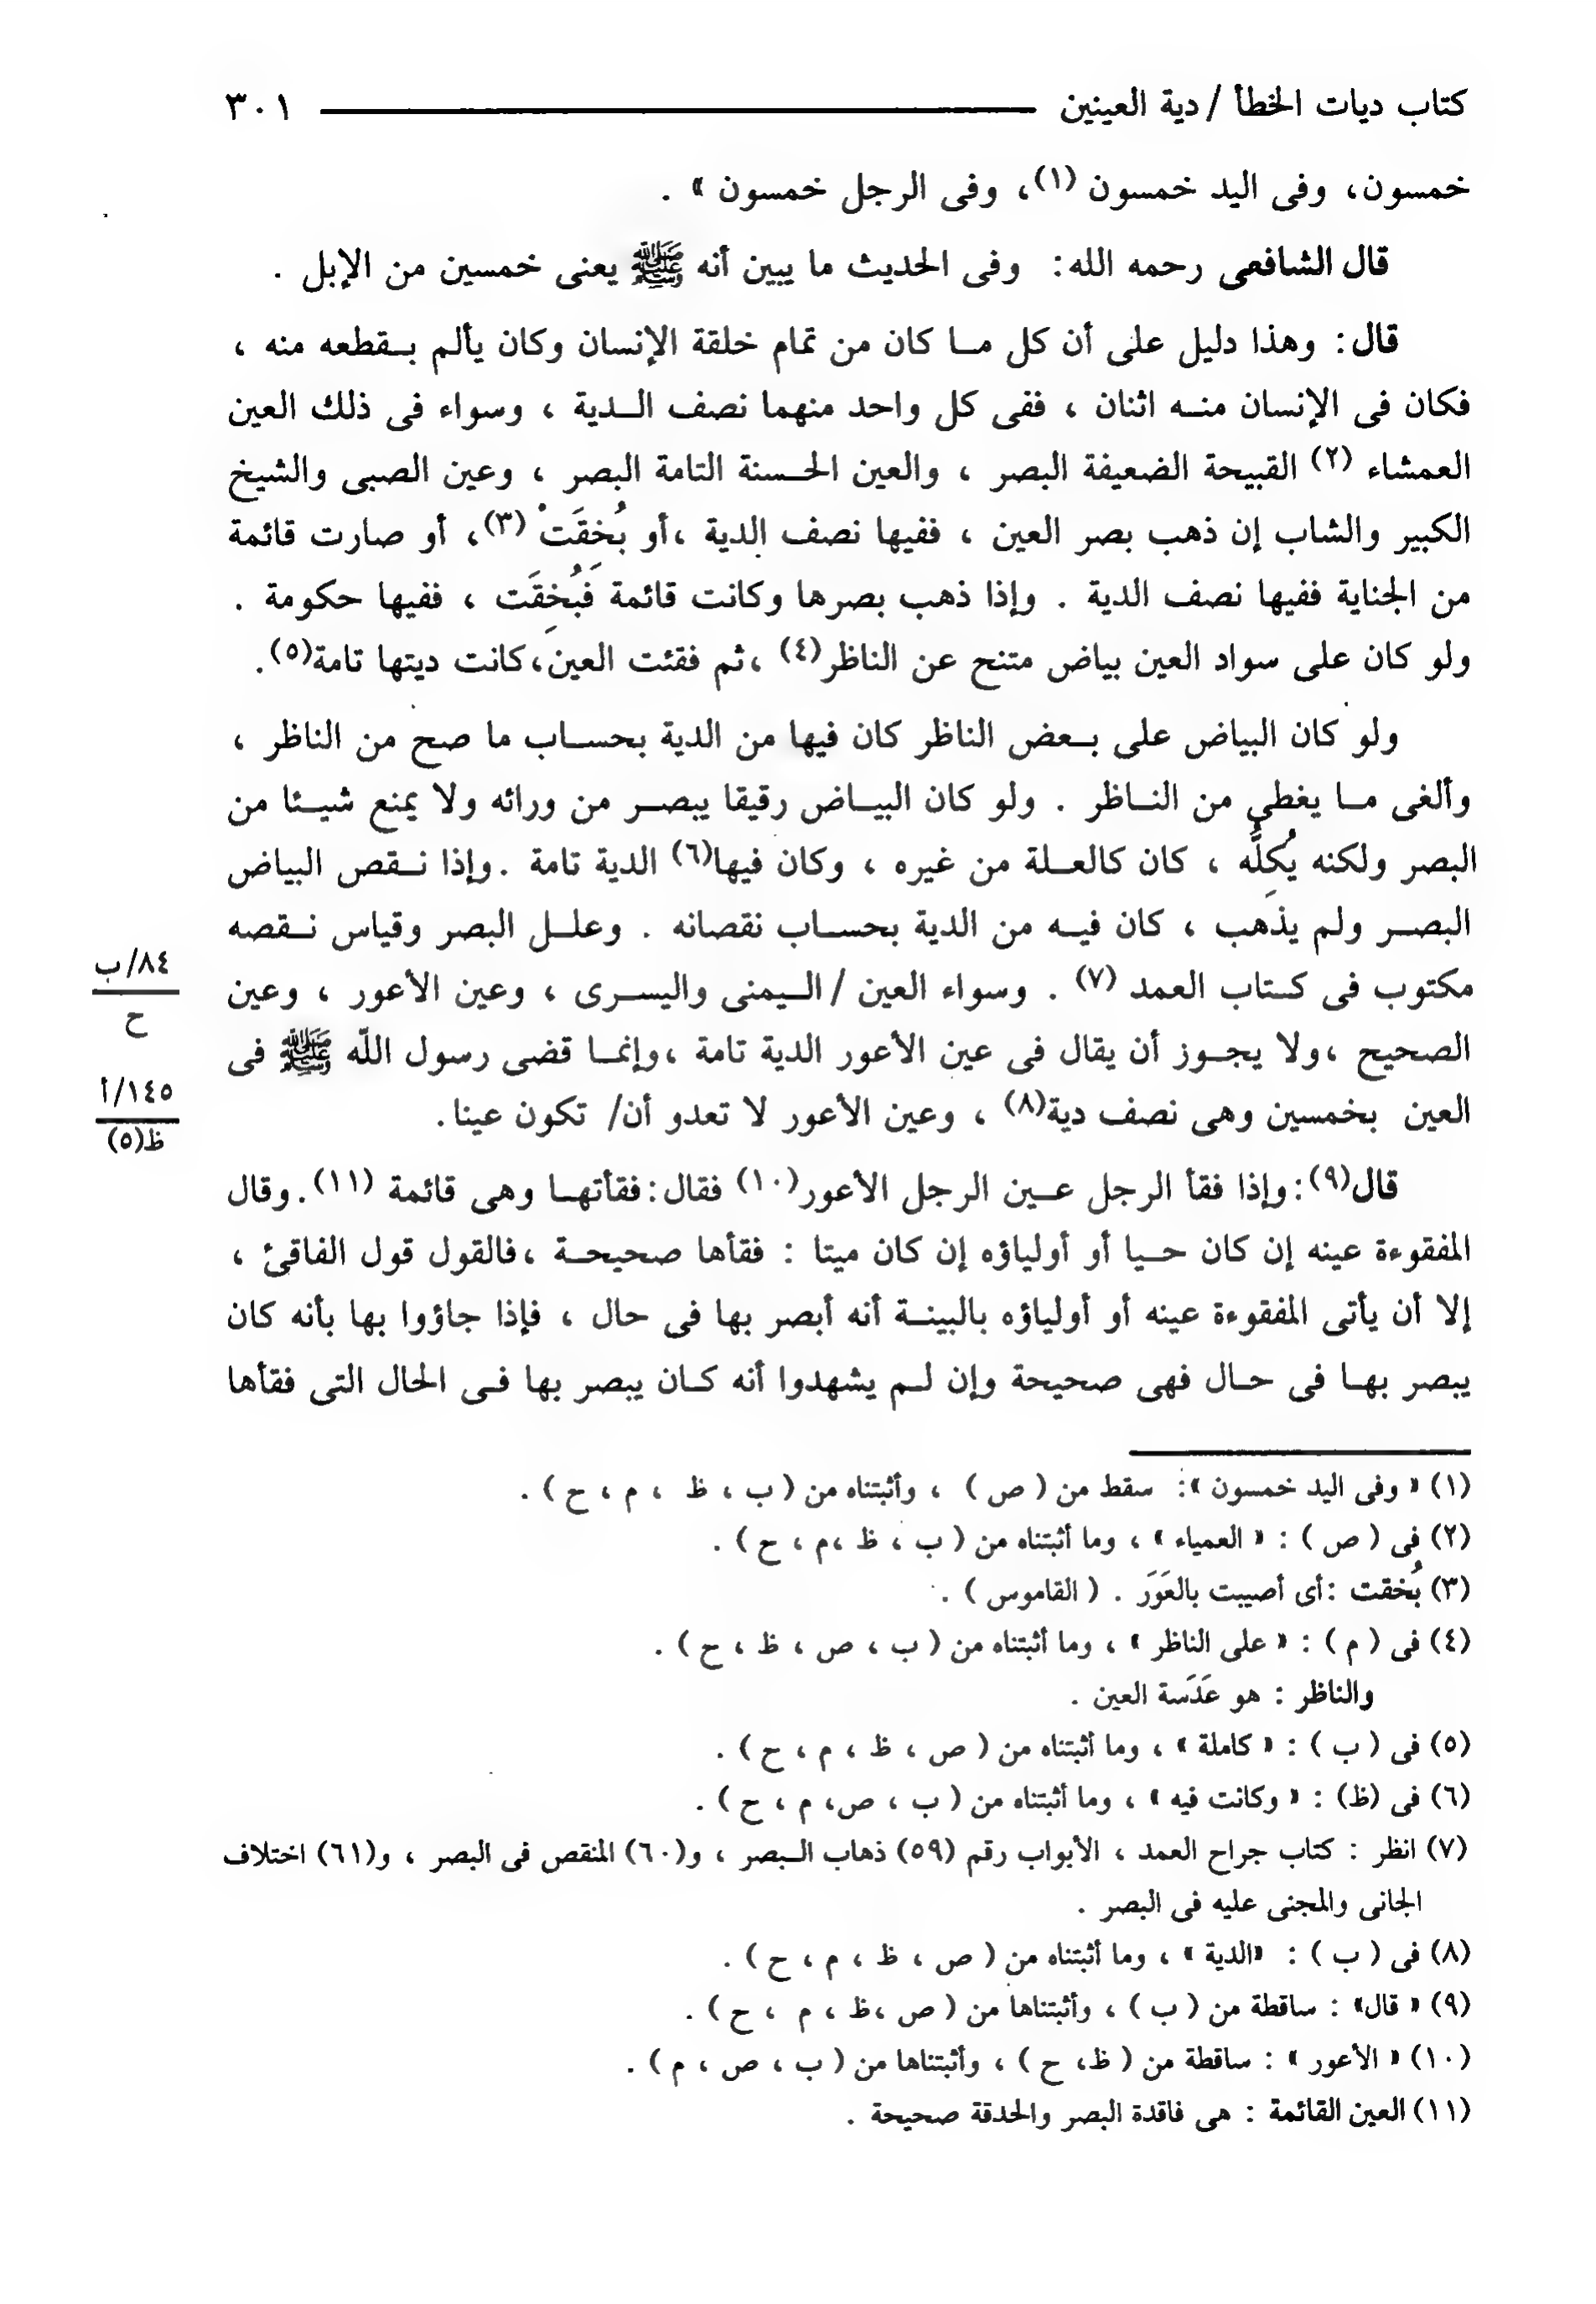 كتاب ديات الخطأ / دية العينين ٣٠١
خمسون، وفى اليد خمسون (١)، وفى الرجل خمسون » .
قال الشافعى رحمه الله: وفى الحديث ما يبين أنه ﷺ يعنى خمسين من الإبل .
قال: وهذا دليل على أن كل ما كان من تمام خلقة الإنسان وكان يألم بقطعه منه ،
فكان فى الإنسان منه اثنان ، ففى كل واحد منهما نصف الدية ، وسواء فى ذلك العين
العمشاء (٢) القبيحة الضعيفة البصر ، والعين الحسنة التامة البصر ، وعين الصبى والشيخ
الكبير والشاب إن ذهب بصر العين ، ففيها نصف الدية ،أو بُخِقَتْ (٣)، أو صارت قائمة
من الجناية ففيها نصف الدية . وإذا ذهب بصرها وكانت قائمة فَبُخِقَت ، ففيها حكومة .
ولو كان على سواد العين بياض متنح عن الناظر(٤) ،ثم فقئت العين،كانت ديتها تامة(٥).
ولو كان البياض على بعض الناظر كان فيها من الدية بحساب ما صح من الناظر ،
وألغى ما يغطى من الناظر . ولو كان البياض رقيقا يبصر من ورائه ولا يمنع شيئا من
البصر ولكنه يُكِلُّه ، كان كالعلة من غيره ، وكان فيها(٦) الدية تامة .وإذا نقص البياض
البصر ولم يذهب ، كان فيه من الدية بحساب نقصانه . وعلل البصر وقياس نقصه
مكتوب فى كتاب العمد (٧) . وسواء العين / اليمنى واليسرى ، وعين الأعور ، وعين
الصحيح ،ولا يجوز أن يقال فى عين الأعور الدية تامة ،وإنما قضى رسول اللّه ﷺ فى
العين بخمسين وهى نصف دية(٨) ، وعين الأعور لا تعدو أن/ تكون عينا.
٨٤/ب
ح
١٤٥/أ
ظ(٥)
قال(٩):وإذا فقأ الرجل عين الرجل الأعور(١٠) فقال:فقأتها وهى قائمة (١١).وقال
المفقوءة عينه إن كان حيا أو أولياؤه إن كان ميتا : فقأها صحيحة ،فالقول قول الفاقئ ،
إلا أن يأتى المفقوءة عينه أو أولياؤه بالبينة أنه أبصر بها فى حال ، فإذا جاؤوا بها بأنه كان
يبصر بها فى حال فهى صحيحة وإن لم يشهدوا أنه كان يبصر بها فى الحال التى فقأها
(١) « وفى اليد خمسون »: سقط من ( ص ) ، وأثبتناه من ( ب ، ظ ، م ، ح ) .
(٢) فى ( ص ) : « العمياء » ، وما أثبتناه من ( ب ، ظ ،م ، ح ) .
(٣) بُخقت :أى أصيبت بالعَوَرَ . ( القاموس ) .
(٤) فى ( م ) : « على الناظر » ، وما أثبتناه من ( ب ، ص ، ظ ، ح ) .
والناظر : هو عَدَسة العين .
(٥) فى ( ب ) : « كاملة » ، وما أثبتناه من ( ص ، ظ ، م ، ح ) .
(٦) فى (ظ) : « وكانت فيه » ، وما أثبتناه من ( ب ، ص، م ، ح ) .
(٧) انظر : كتاب جراح العمد ، الأبواب رقم (٥٩) ذهاب البصر ، و(٦٠) المنقص فى البصر ، و(٦١) اختلاف
الجانى والمجنى عليه فى البصر .
(٨) فى ( ب ) : «الدية » ، وما أثبتناه من ( ص ، ظ ، م ، ح ) .
(٩) « قال» : ساقطة من ( ب ) ، وأثبتناها من ( ص ،ظ ، م ، ح ) .
(١٠) « الأعور » : ساقطة من ( ظ، ح ) ، وأثبتناها من ( ب ، ص ، م ) .
(١١) العين القائمة : هى فاقدة البصر والحدقة صحيحة .